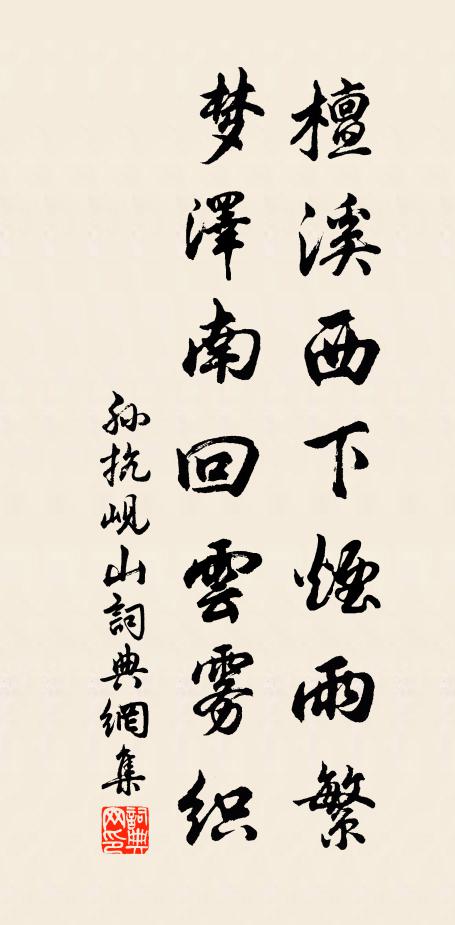 檀溪西下煙雨繁
梦澤南回雲雾织
孙抗岘山詞典網集
詞典网印